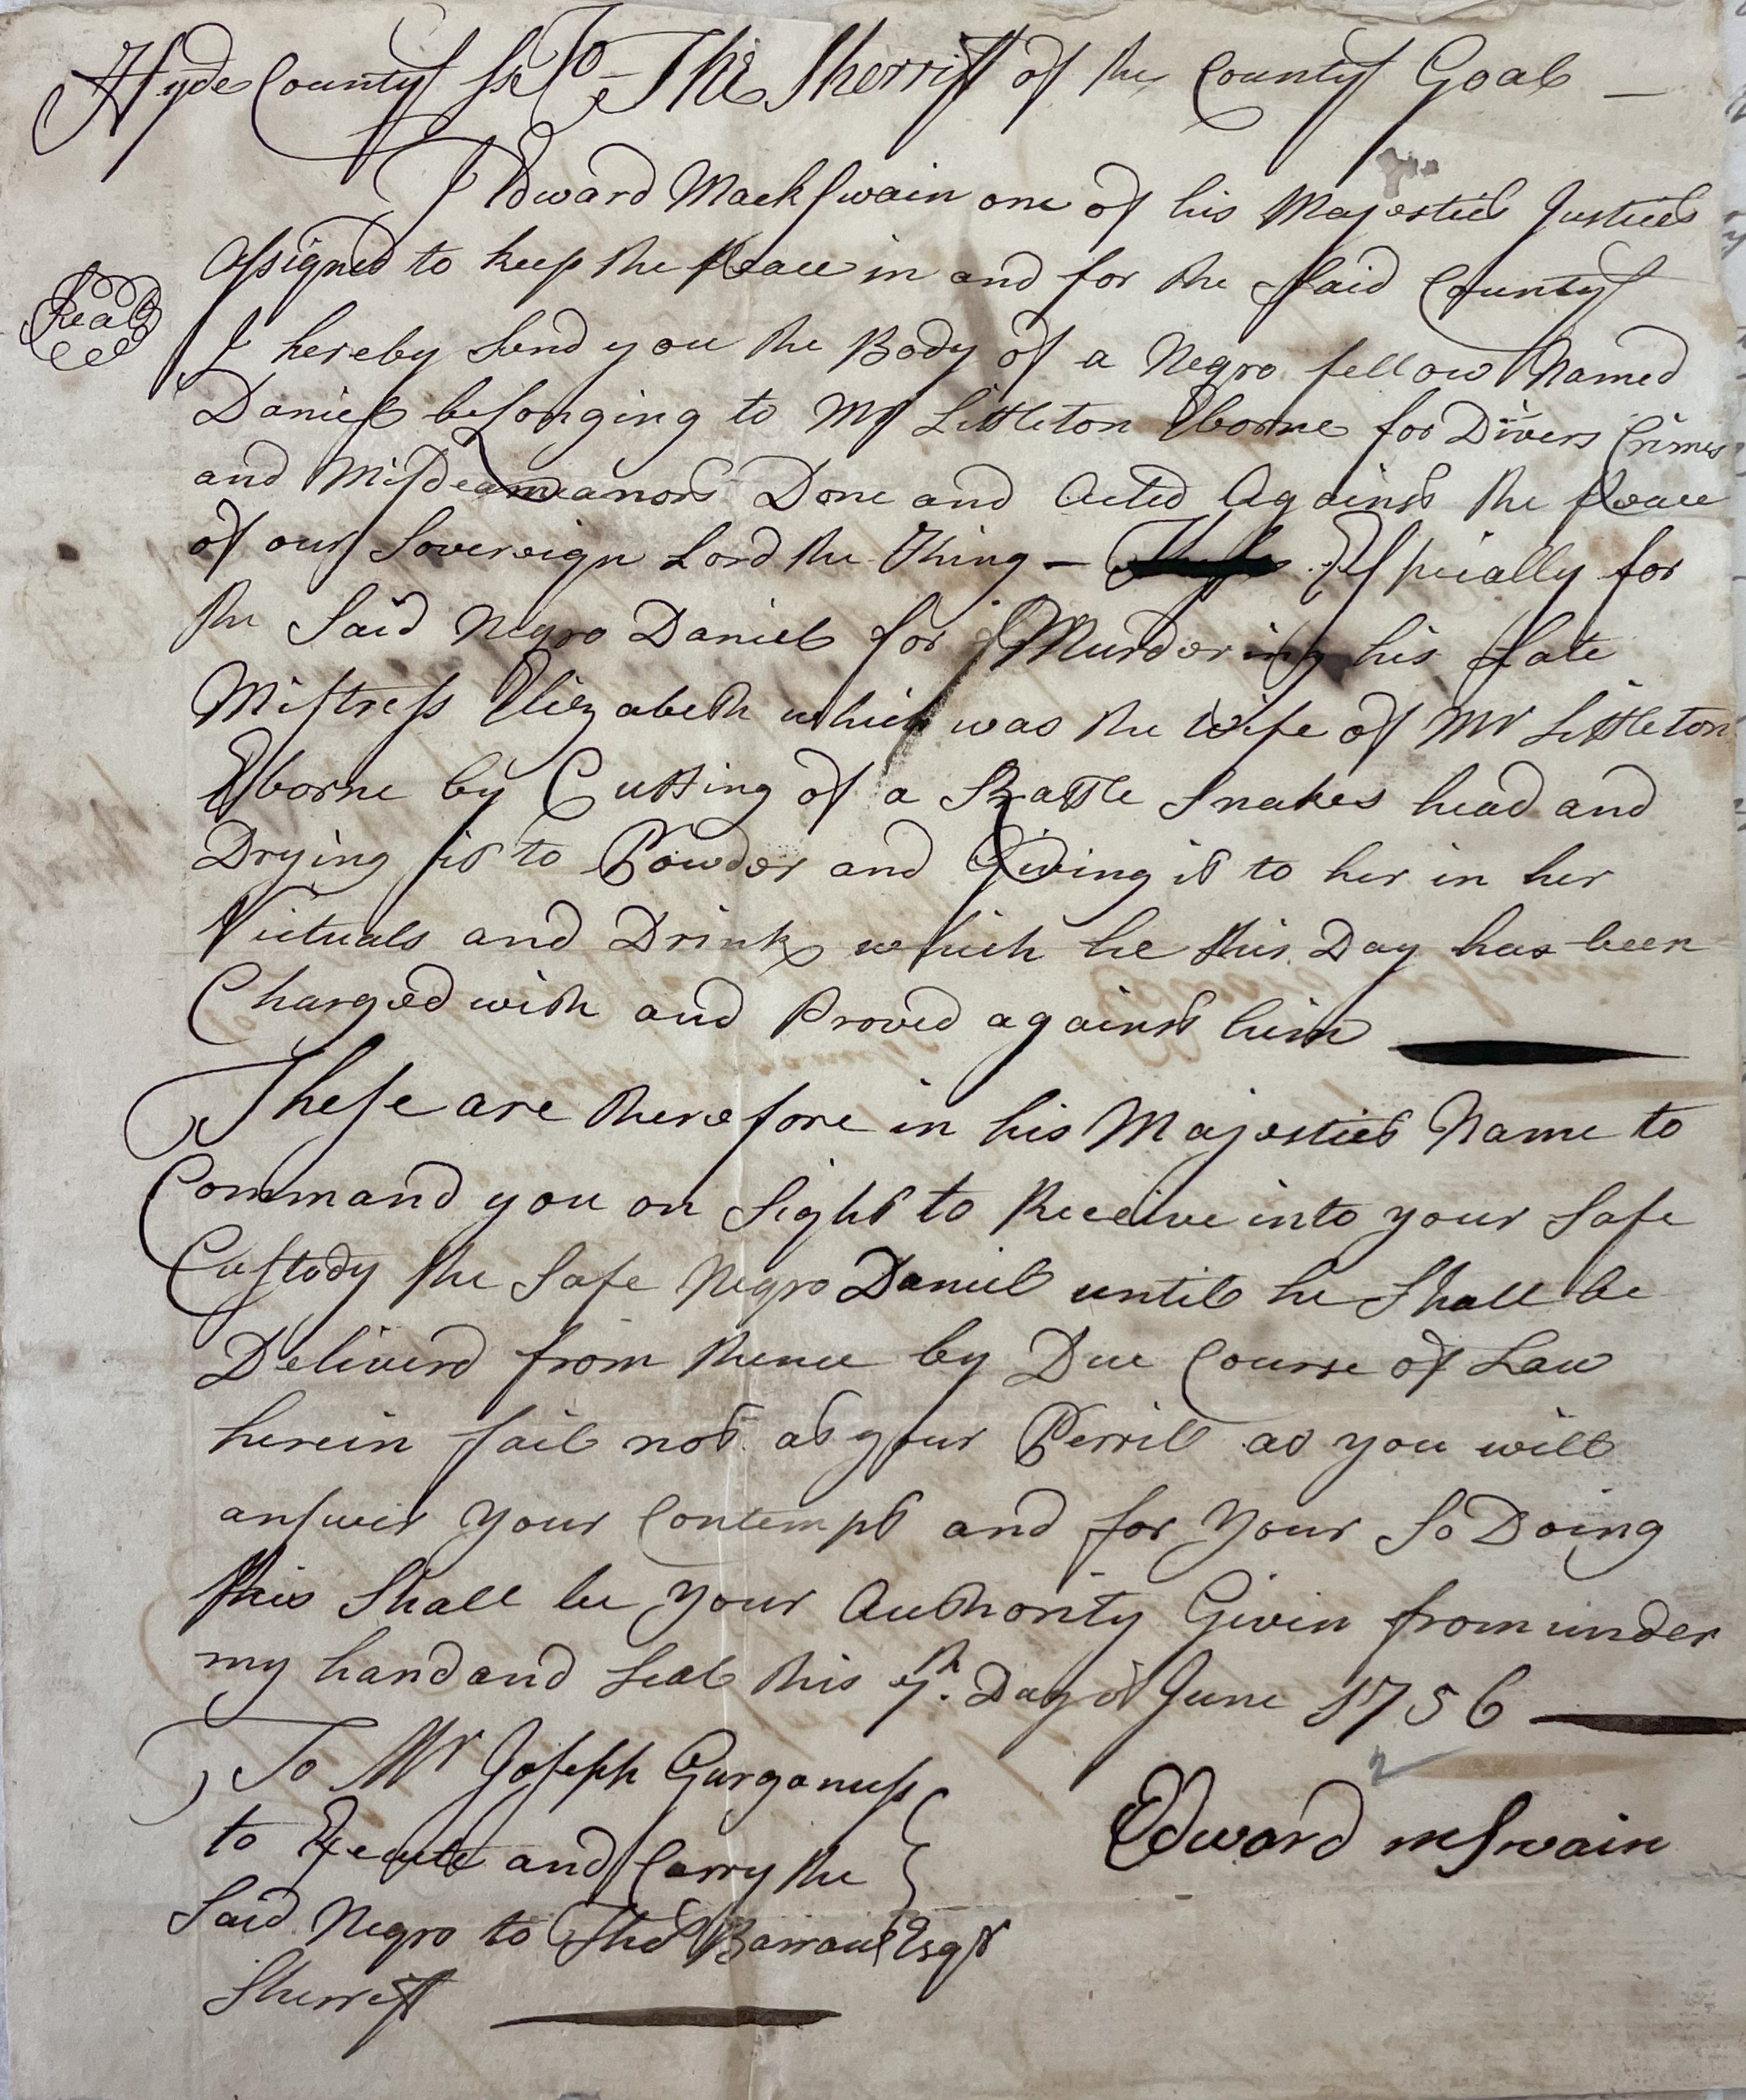 Hyde County Sst To The Sherrift of the County Goal —
I Edward Mackswain one of his Majesties Justices
Assigned to keep the Peace in and for the Said County
Seal
I hereby Send you the Body of a Negro fellow Named
Daniel belonging to Mr Littleton Eborne for Divers Crimes
and Misdeameanors Done and Acted Against the Peace
of our Sovereign Lord the King — Espicially for
the Said Negro Daniel for Murdering his Late
Mistress Elizabeth which was the Wife of Mr Littleton
Eborne by Cutting of a Rattle Snakes head and
Drying it to Powder and Giving it to her in her
Victuals and Drink which he this Day has been
Charged with and Proved against him
These are therefore in his Majesties Name to
Command you on Sight to Receive into your Safe
Custody the Safe Negro Daniel until he Shall be
Deliverd from thence by Due Course of Law
herein fail not at your Perrill as you will
answer your Contempt and for Your So Doing
this Shall be Your Authority Givin from under
my hand and Seal this 7th Day of June 1756
To Mr Joseph Gurganuss
to Execute and Carry the
Said Negro to Thos Barraw Esqr
Sherrift
Edward mSwain